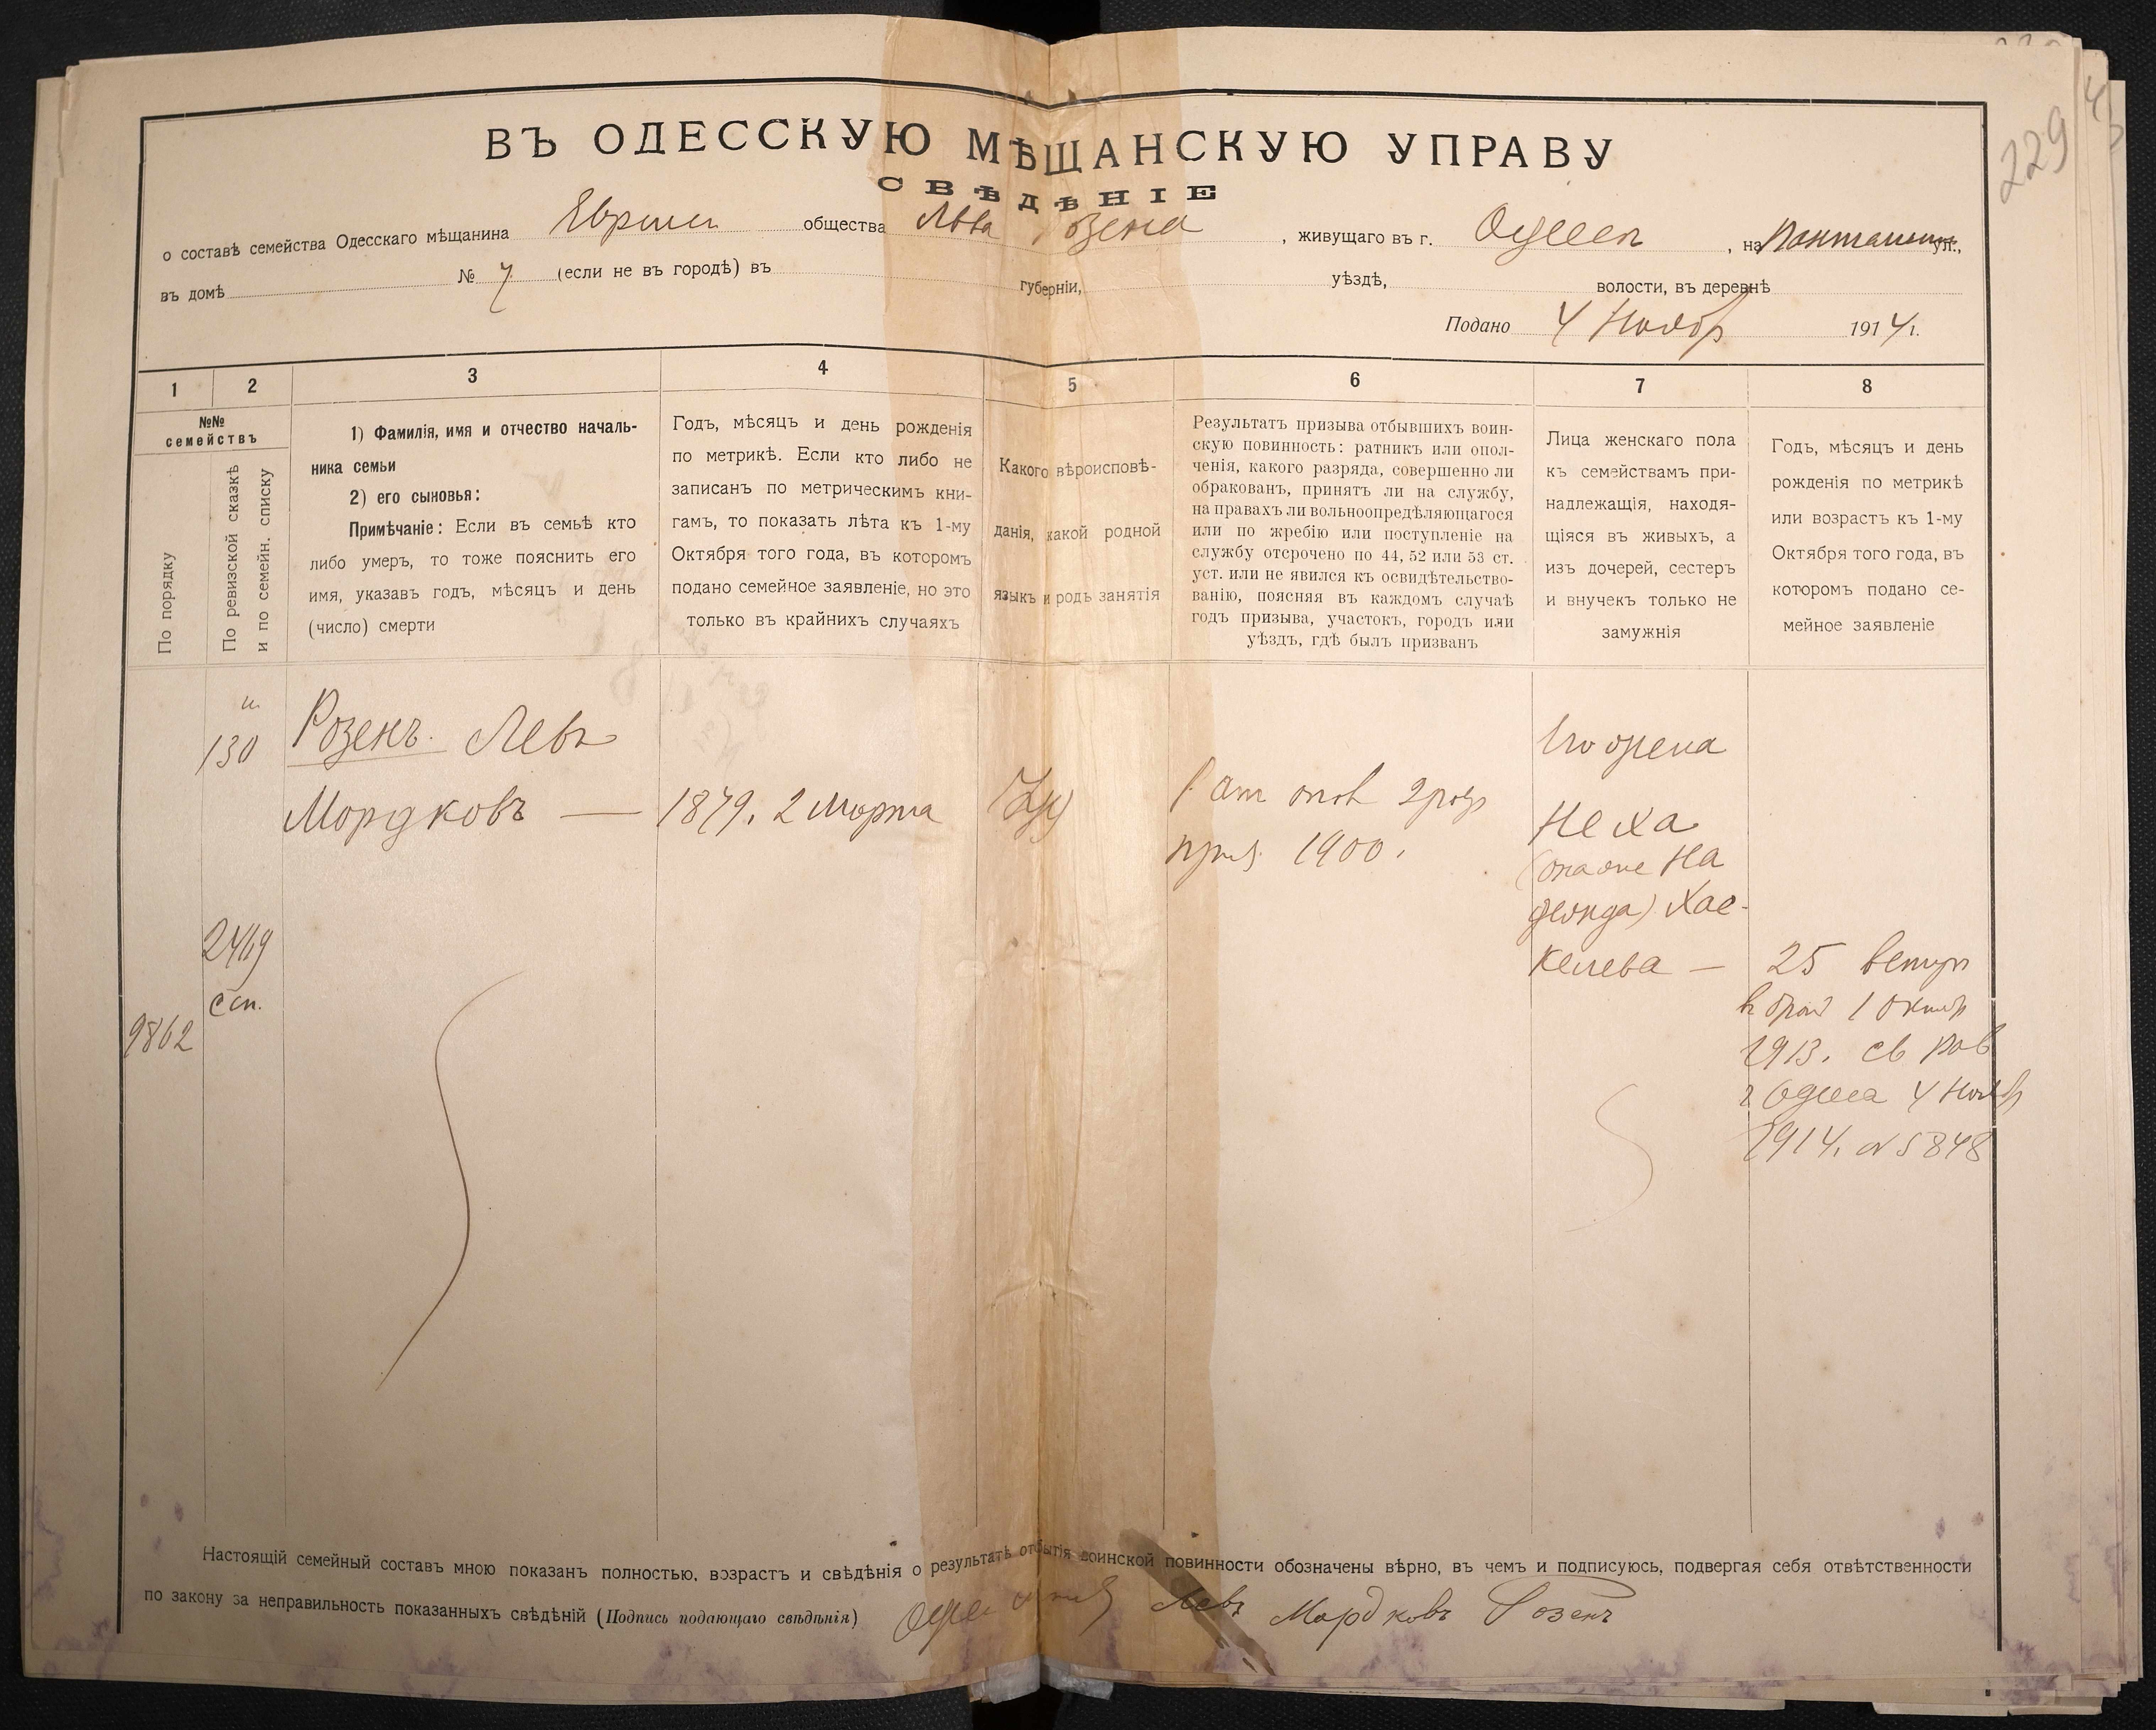 229
ВЪ ОДЕССКУЮ МѢЩАНСКУЮ УПРАВУ
СВѢДѢНІЕ
о составѣ семейства Одесскаго мѣщанина общества Льва Розена, живущаго въ г. Одессѣ, на ул.,
въ домѣ № 7 (если не въ городѣ) въ губерніи, уѣздѣ, волости, въ деревнѣ
Подано 4 Ноябр 1914 г.
1 2 3 4 5 6 7 8
№№ семействъ
По порядку
По ревизской сказкѣ
и по семейн. списку
1) Фамилія, имя и отчество началь-
ника семьи
2) его сыновья:
Примѣчаніе: Если въ семьѣ кто
либо умеръ, то тоже пояснить его
имя, указавъ годъ, мѣсяцъ и день
(число) смерти
Годъ, мѣсяцъ и день рожденія
по метрикѣ. Если кто либо не
записанъ по метрическимъ кни-
гамъ, то показать лѣта къ 1-му
Октября того года, въ которомъ
подано семейное заявленіе, но это
только въ крайнихъ случаяхъ
Какого вѣроисповѣ-
данія, какой родной
языкъ и родъ занятія
Результатъ призыва отбывшихъ воин-
скую повинность: ратникъ или опол-
ченія, какого разряда, совершенно ли
обракованъ, принятъ ли на службу,
на правахъ ли вольноопредѣляющагося
или по жребію или поступленіе на
службу отсрочено по 44, 52 или 53 ст.
уст. или не явился къ освидѣтельство-
ванію, поясняя въ каждомъ случаѣ
годъ призыва, участокъ, городъ или
уѣздъ, гдѣ былъ призванъ
Лица женскаго пола
къ семействамъ при-
надлежащія, находя-
щіяся въ живыхъ, а
изъ дочерей, сестеръ
и внучекъ только не
замужнія
Годъ, мѣсяцъ и день
рожденія по метрикѣ
или возрастъ къ 1-му
Октября того года, въ
которомъ подано се-
мейное заявленіе
130
Розенъ Левъ
Мордковъ — 1879. 2 Марта
Іуд
Рат опол 2 разр
приз. 1900.
Его жена
Неха
(она же На
дежда) Хас-
келева —
25
1 Октяб
1913. св рав
г Одесса 4 Нояб
1914. № 5848
2469
с сп.
9862
Настоящій семейный составъ мною показанъ полностью, возрастъ и свѣдѣнія о результатѣ отбытія воинской повинности обозначены вѣрно, въ чемъ и подписуюсь, подвергая себя отвѣтственности
по закону за неправильность показанныхъ свѣдѣній (Подпись подающаго свѣдѣнія) Левъ Мордковъ Розенъ